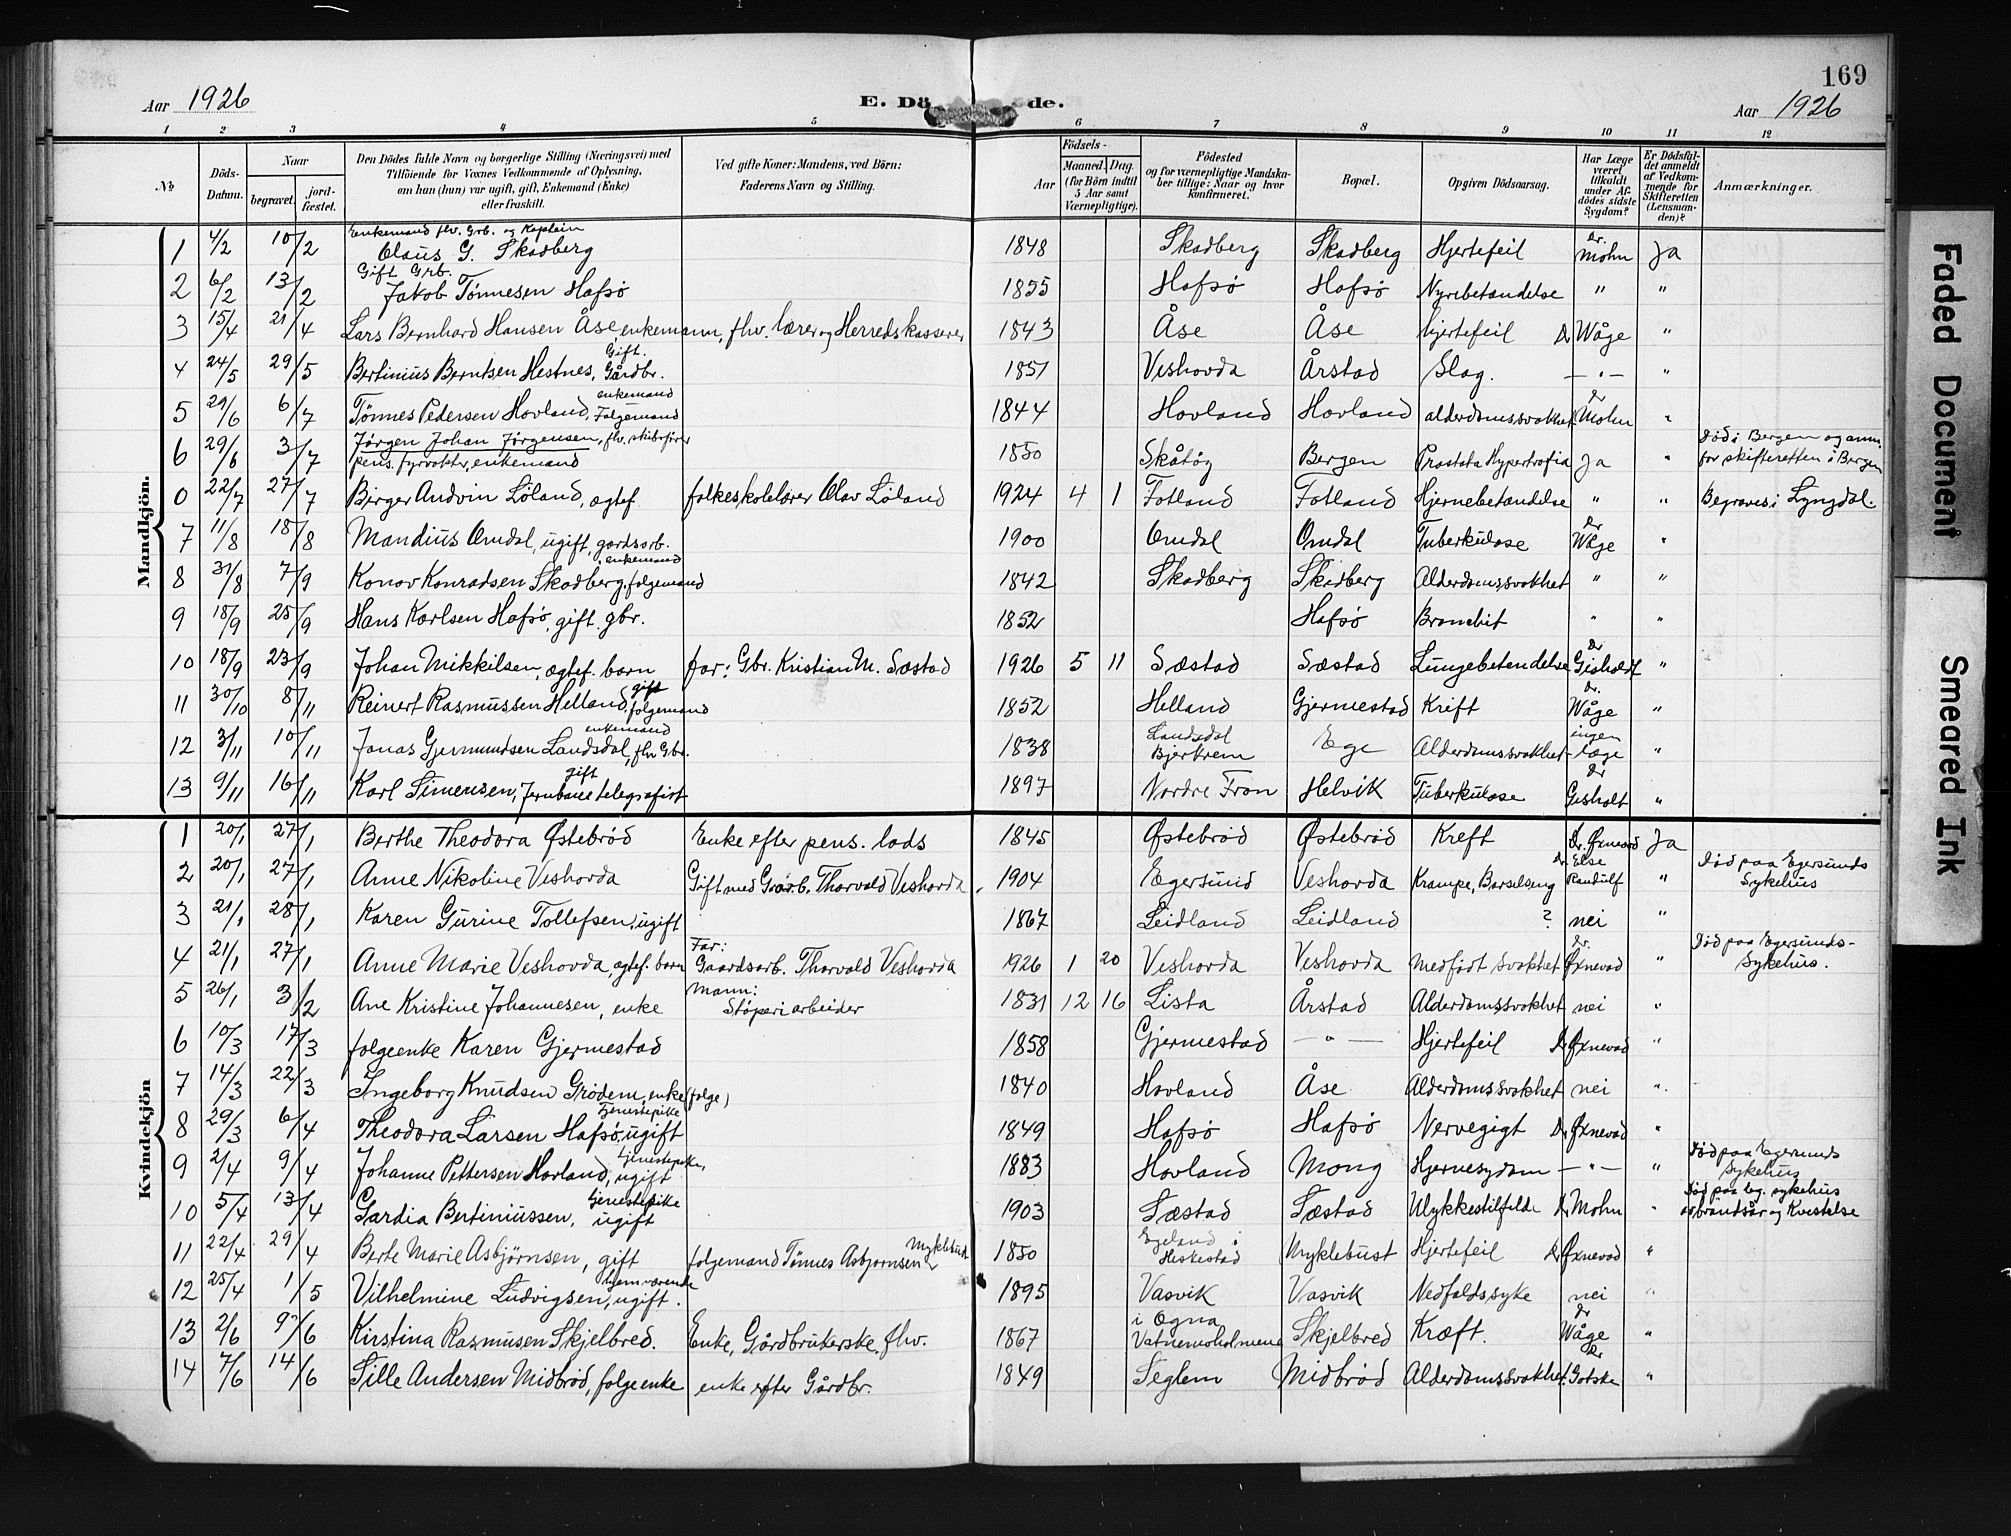 169
Aar 1926 E. Dö de. Aar 1926
1 2 3 4 5 6 7 8 9 10 11 12
№ Döds-Datum. Naar begravet. jordfæstet. Den Dödes fulde Navn og borgerlige Stilling (Næringsvei) med Tilföiende for Voxnes Vedkommende af Oplysning, om han (hun) var ugift, gift, Enkemand (Enke) eller fraskilt. Ved gifte Koner: Mandens, ved Börn: Faderens Navn og Stilling. Födsels- Aar Maaned. Dag. (for Börn indtil 5 Aar samt Værnepligtige). Födested og for værnepligtige Mandskaber tillige: Naar og hvor konfirmeret. Bopæl. Opgiven Dödsaarsag. Har Læge været tilkaldt under Afdödes sidste Sygdom? Er Dödsfaldet anmeldt af Vedkommende for Skifteretten (Lensmanden)? Anmærkninger.
Mandkjön.
1 4/2 10/2 Enkemand flv. Grb. og Kaptein Claus G. Skadberg 1848 Skadberg Skadberg Hjertefeil Dr. Mohn Ja
2 6/2 13/2 Gift Grb. Jakob Tönnesen Hafsö 1855 Hafsö Hafsö Nyrebetændelse " "
3 15/4 21/4 Lars Bernhard Hansen Åse enkemann, fhv. lærer og Herredskasserer 1843 Åse Åse hjertefeil Dr Wåge "
4 24/5 29/5 Bertinius Berntsen Hestnes, Gift. Gårdbr. 1851 Veshovda Årstad Slag. — " — "
5 29/6 6/7 Tönnes Pedersen Hovland, enkemand Folgemand 1844 Hovland Hovland alderdomssvakhet Dr Mohn "
6 29/6 3/7 Jörgen Johan Jörgensen, flv. skibsförer pens. fyrvokter, enkemand 1850 Skåtöy Bergen Prostata Hypertrofia Ja " Död i Bergen og anm. for skifteretten i Bergen
0 22/7 27/7 Birger Andvin Löland, ægtef folkeskolelærer Olav Löland 1924 4 1 Fotland Fotland Hjernebetændelse " " Begraves i Lyngdal.
7 11/8 18/8 Mandius Omdal, ugift, gardsarb. 1900 Omdal Omdal Tuberkulose Dr Wåge "
8 31/8 7/9 Konov Konradsen Skadberg, enkemand folgemand 1842 Skadberg Skadberg Alderdomssvakhet " "
9 18/9 25/9 Hans Karlsen Hafsö, gift. gbr. 1852 Hafsö Bronchit " "
10 18/9 23/9 Johan Mikkilsen, ægtef. barn far: Gbr. Kristian M. Sæstad 1926 5 11 Sæstad Sæstad Lungebetendelse Dr Gisholdt "
11 30/10 8/11 Reinert Rasmussen Helland, gift folgemand 1852 Helland Gjermestad Kreft Dr. Wåge "
12 3/11 10/11 Jonas Gjermundsen Landsdal, enkemand flv Gbr. 1838 Landsdal Bjerkrem Ege Alderdomssvakhet ingen læge "
13 9/11 16/11 Karl Simensen, gift Jernbanetelegrafist 1897 Nordre Fron Helvik Tuberkulose Dr Gisholt "
Kvindekjön
1 20/1 27/1 Berthe Theodora Östebröd Enke efter pens. lods 1845 Östebröd Östebröd Kreft Dr. Öxnevad Ja
2 20/1 27/1 Anne Nikoline Veshovda Gift med Garb. Thorvald Veshovda. 1904 Egersund Veshovda Krampe, Barselseng Dr Else Randulf " Död paa Egersunds Sykehus
3 21/1 28/1 Karen Gurine Tollefsen, ugift 1867 Leidland Leidland ? nei "
4 21/1 27/1 Anne Marie Veshovda, ægtef. barn Far: Gaardsarb. Thorvald Veshovda 1926 1 20 Veshovda Veshovda Medfödt svakhet Dr. Öxnevad " Död paa Egersunds-Sykehus.
5 26/1 3/2 Ane Kristine Johannesen, enke Mann: Stöperiarbeider 1831 12 16 Lista Årstad Alderdomssvakhet nei "
6 10/3 17/3 folgeenke Karen Gjermestad 1858 Gjermestad — " — Hjertefeil Dr Öxnevad "
7 14/3 22/3 Ingeborg Knudsen Grödem, enke (folge) 1840 Hovland Åse Alderdomssvakhet nei "
8 29/3 6/4 Theodora Larsen Hafsö, Tjenestepike ugift 1849 Hafsö Hafsö Nervegigt Dr Öxnevad "
9 2/4 9/4 Johanne Pettersen Hovland, tjenestepike, ugift 1883 Hovland Mong Hjernesydom — " — " Död paa Egersunds Sykehus
10 5/4 13/4 Gardia Bertiniussen, tjenestepike ugift 1903 Sæstad Sæstad Ulykkestilfelde Dr Mohn " Död paa Eg. sykehus av brandsår og Kvestelse
11 22/4 29/4 Berte Marie Asbjörnsen, gift folgemand Tönnes Asbjornsen Myklebust 1850 Egeland i Heskestad Myklebust Hjertefeil Dr Öxnevad "
12 25/4 1/5 Vilhelmine Ludvigsen, hjemværende ugift. 1895 Vasvik Vasvik Nedfaldssyke nei "
13 2/6 9/6 Kirstina Rasmusen Skjelbred. Enke, Gårdbrukerske, flv. 1867 i Ogna Vatnemoholmene Skjelbred Kræft. Dr Wåge "
14 7/6 14/6 Sille Andersen Midbröd, folgeenke enke efter Gårdbr. 1849 Seglem Midbröd Alderdomssvakhet Dr "
Faded Document
Smeared Ink